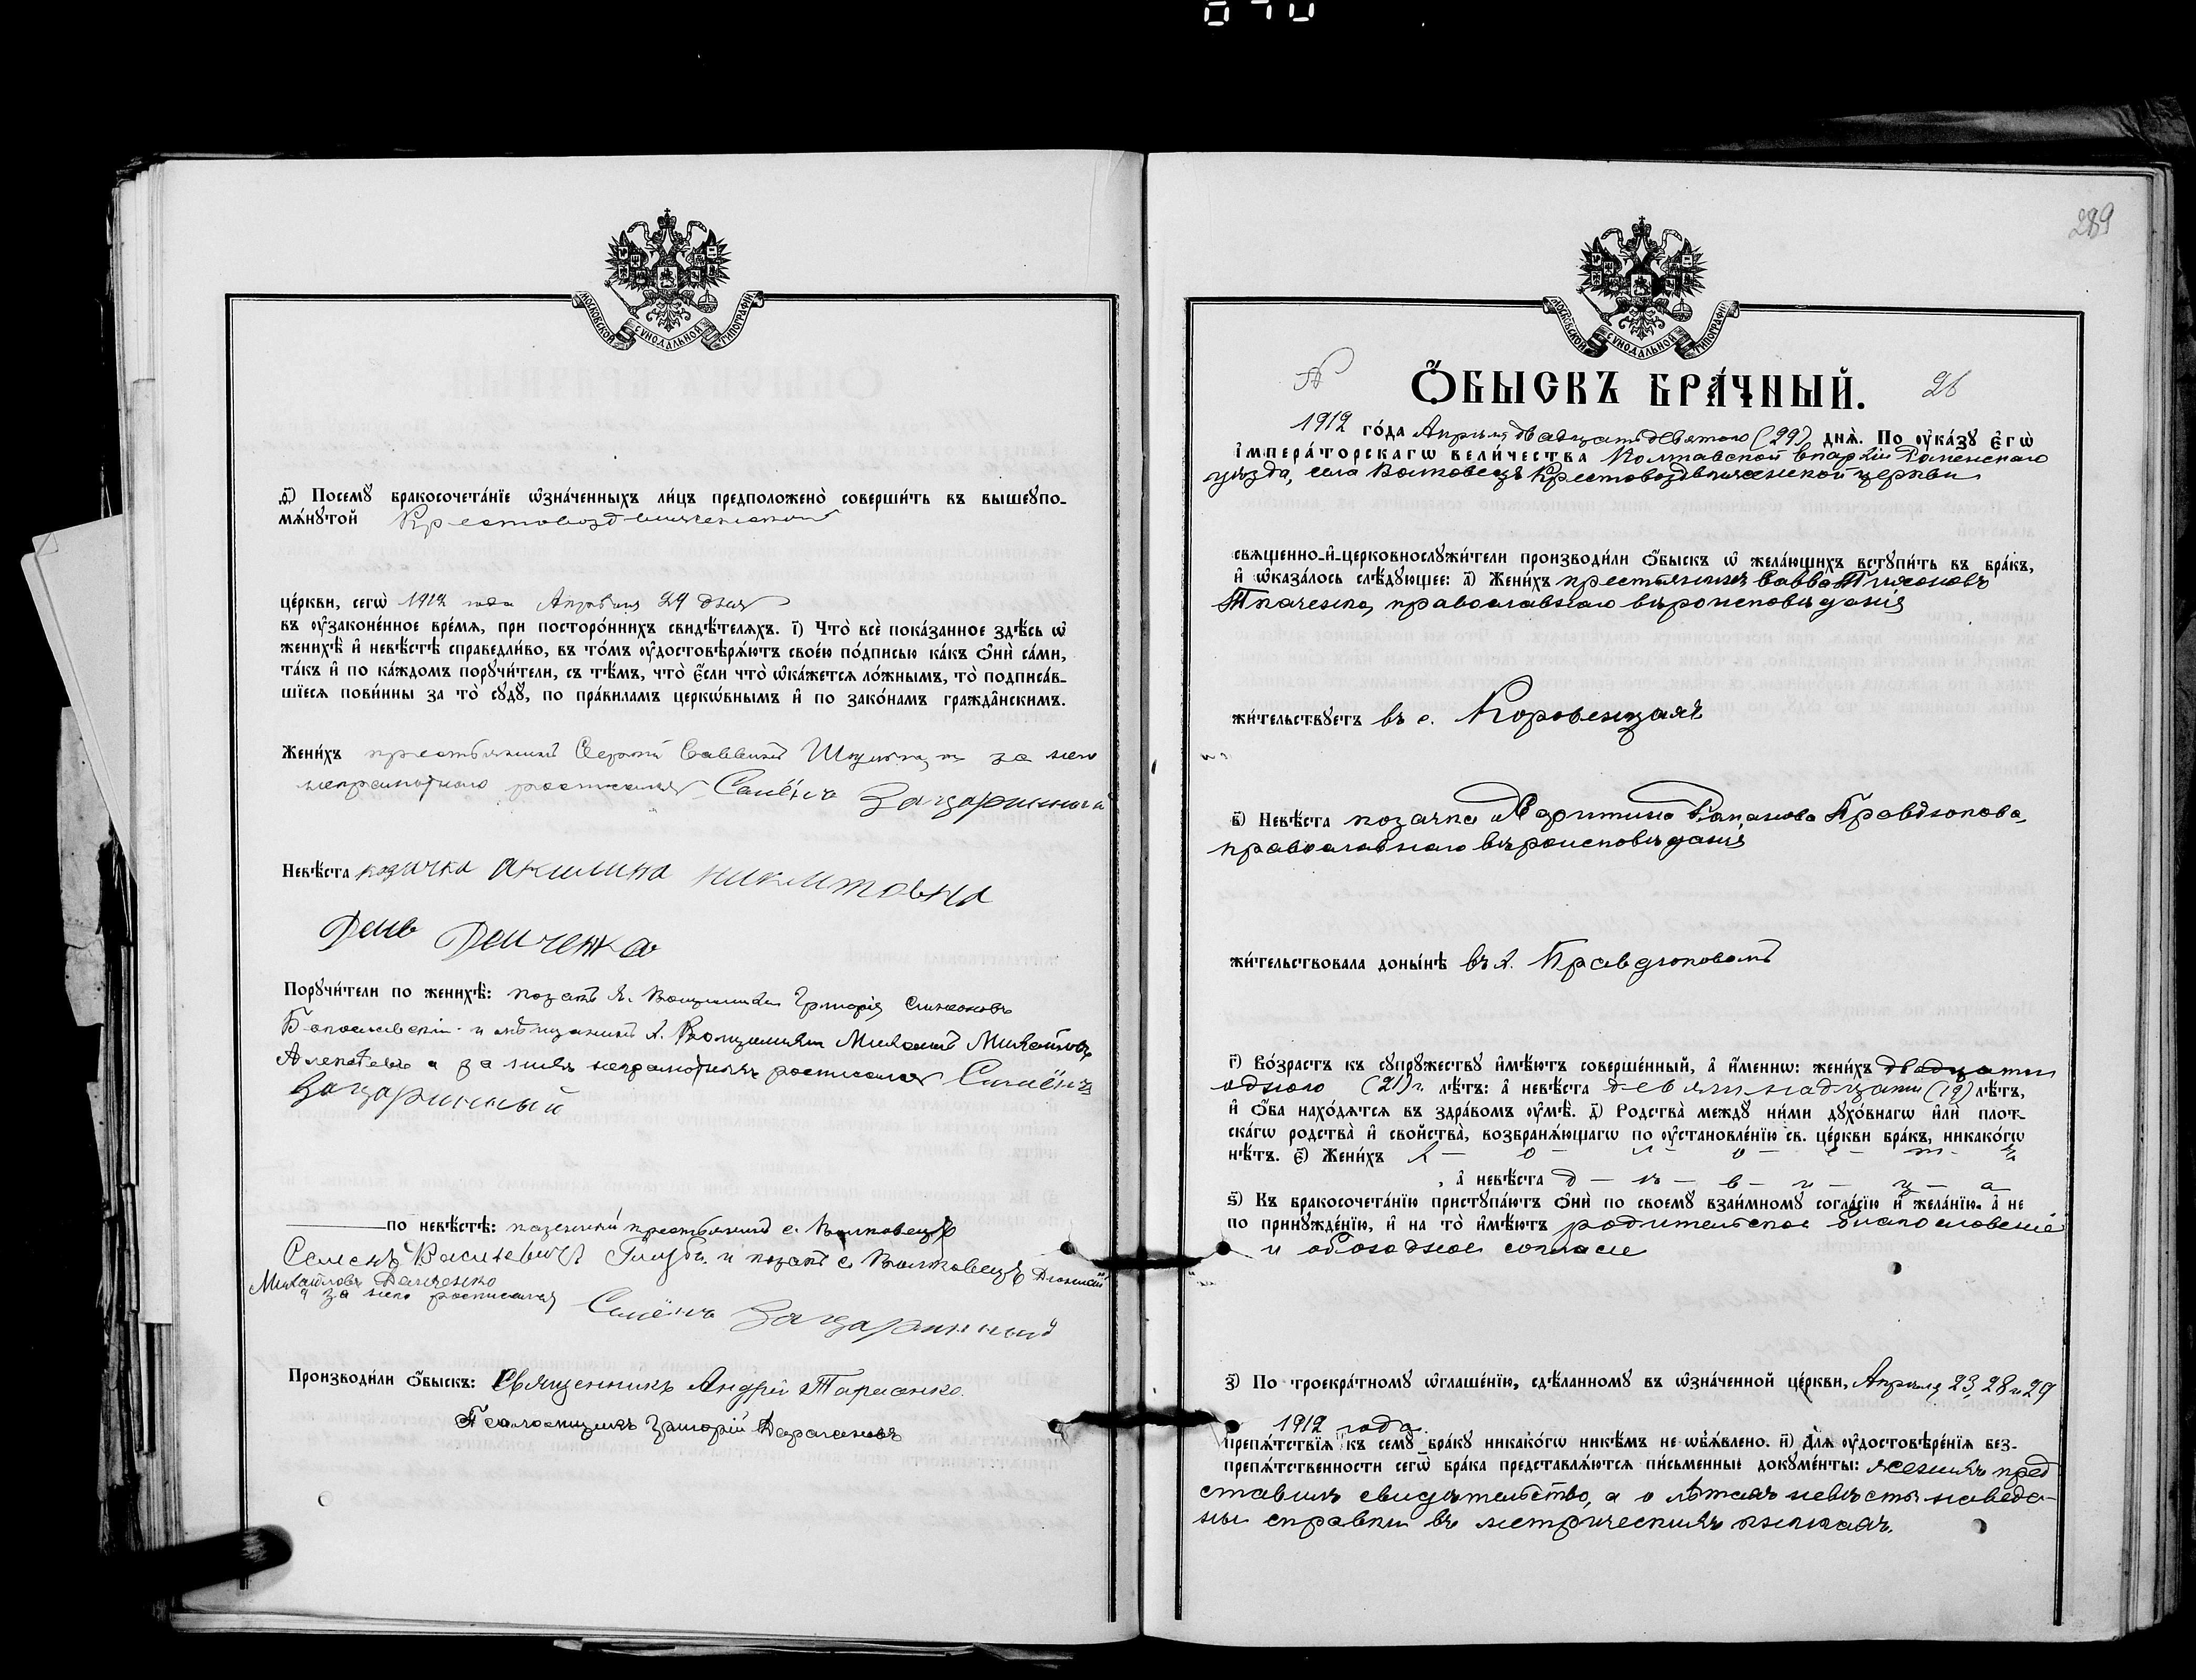 МОСКОВСКОЙ СУНОДАЛЬНОЙ ТИПОГРАФІИ
ѳ҃) Посемꙋ̀ бракосочета́нїе ѡ҆зна́ченныхъ ли́цъ предположено̀ соверши́ть въ вышеꙋпо-
мѧ́нꙋтой Крестовоздвиженской
це́ркви, сегѡ̀ 1912 года Апрѣля 29 дня
въ ᲂу҆законе́нное вре́мѧ, при посторо́ннихъ свидѣ́телѧхъ. і҃) Что̀ всѐ пока́занное здѣ́сь ѡ҆
женихѣ̀ и҆ невѣ́стѣ справедли́во, въ то́мъ ᲂу҆достовѣрѧ́ютъ свое́ю по́дписью ка́къ ѻ҆нѝ са́ми,
та́къ и҆ по ка́ждомъ порꙋчи́тели, съ тѣ́мъ, что̀ є҆́сли что̀ ѡ҆ка́жется ло́жнымъ, то̀ подписа́в-
шїеся пови́нны за то̀ сꙋдꙋ̀, по пра́виламъ церкѡ́внымъ и҆ по зако́намъ гражда̂нскимъ.
Жени́хъ крестьянинъ Сергѣй Саввинъ а за него
неграмотнаго росписался Семёнъ Зацаринный
Невѣ́ста козачка акилина никитовна
Демь Демченкова
Порꙋчи́тели по женихѣ̀: козакъ Григорій Симеоновъ
и мѣщанинъ Михаилъ Михайловъ
Алексѣевъ а за нихъ неграмотныхъ росписался Семёнъ
Зацаринный
по невѣ́стѣ: казенный крестьянинъ с. Волковецъ
Семенъ Васильевичъ и козакъ с. Волковецъ
Михайловъ Демченко
а за него росписался Семёнъ Зацаринный
Производи́ли ѻ҆́быскъ: Священникъ Андрей Тарасенко.
Псаломщикъ Григорій
289
МОСКОВСКОЙ СУНОДАЛЬНОЙ ТИПОГРАФІИ
№ Ѻ҆́БЫСКЪ БРА́ЧНЫЙ. 26
1912 го́да Апрѣля двадцать девятаго (29) днѧ̀. По ᲂу҆ка́зꙋ Є҆гѡ̀
і҆мпера́торскагѡ вели́чества Полтавской епархіи Роменскаго
уѣзда, села Волковецъ Крестовоздвиженской церкви
свѧще́нно-и҆-церковнослꙋжи́тели производи́ли ѻ҆́быскъ ѡ҆ жела́ющихъ встꙋпи́ть въ бра́къ,
и҆ ѡ҆каза́лось слѣ́дꙋющее: а҃) Жени́хъ крестьянинъ Савва Тихоновъ
Ткаченко, православнаго вѣроисповѣданія
жи́тельствꙋетъ въ с. Коровенцахъ
в҃) Невѣ́ста козачка Харитина Романова Правдюкова,
православнаго вѣроисповѣданія
жи́тельствовала доны́нѣ въ х. Правдюковомъ
г҃) Во́зрастъ къ сꙋпрꙋ́жествꙋ и҆мѣ́ютъ соверше́нный, а҆ и҆́меннѡ: жени́хъ двадцати
одного (21) г. лѣ́тъ: а҆ невѣ́ста девятнадцати (19) лѣ́тъ,
и҆ ѻ҆́ба нахо́дѧтся въ здра́вомъ ᲂу҆мѣ̀. д҃) Родства̀ междꙋ ни́ми дꙋхо́внагѡ и҆лѝ плот-
ска́гѡ родства̀ и҆ свойства̀, возбранѧ́ющагѡ по ᲂу҆становле́нїю св. це́ркви бра́къ, никако́гѡ
нѣ́тъ. є҃) Жени́хъ х — о — л — о — с — т — ъ
, а҆ невѣ́ста д — ѣ — в — и — ц — а
ѕ҃) Къ бракосочета́нїю пристꙋпа́ютъ ѻ҆нѝ по своемꙋ̀ взаи́мномꙋ согла́сїю и҆ жела́нїю. а҆ не
по принꙋжде́нїю, и҆ на то̀ и҆мѣ́ютъ родительское благословеніе
и обоюдное согласіе
з҃) По троекра́тномꙋ ѡ҆глаше́нїю, сдѣ́ланномꙋ въ ѡ҆зна́ченной це́ркви, Апрѣля 23, 28 и 29
1912 года.
препѧ́тствїѧ къ семꙋ̀ бра́кꙋ никако́гѡ никѣ́мъ не ѡ҆б̾ѧ́влено. и҃) Длѧ ᲂу҆достовѣре́нїѧ без-
препѧ́тственности сегѡ̀ бра́ка представлѧ́ются пи́сьменные докꙋме́нты: женихъ пред
ставилъ свидѣтельство, а о лѣтахъ невѣсты наведе-
ны справки въ метрическихъ книгахъ.